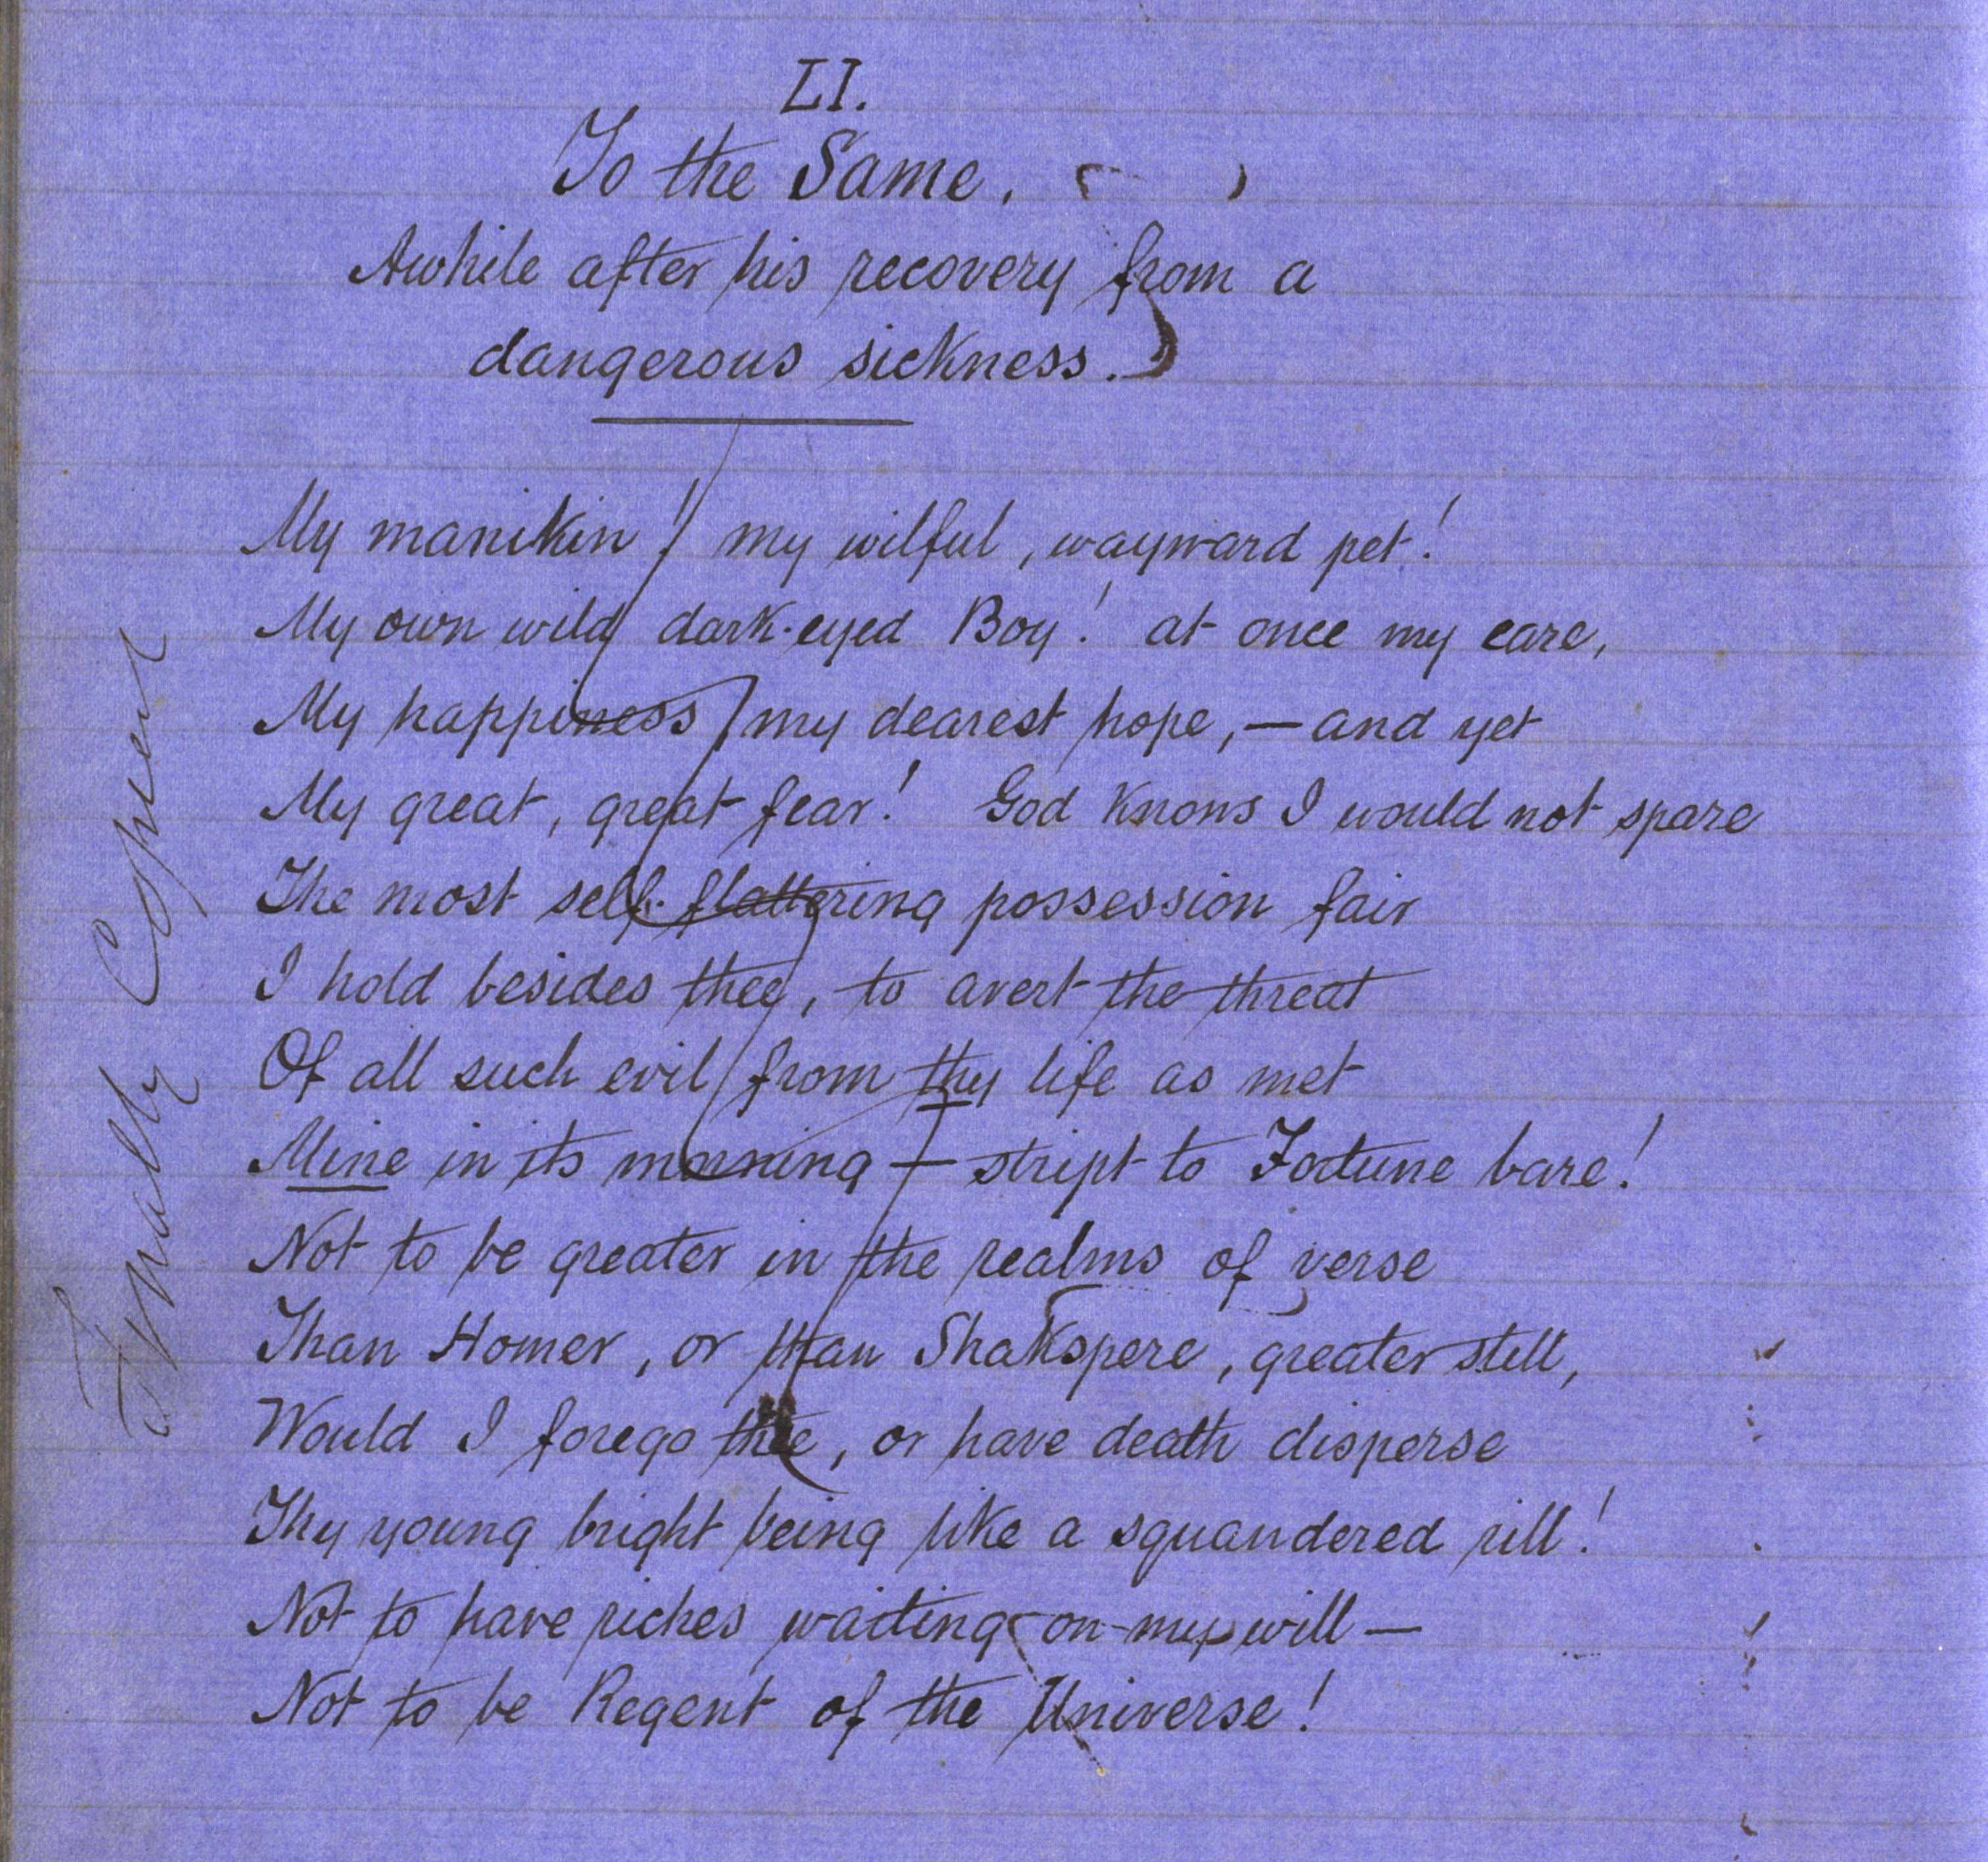 LI.
To the Same.
Awhile after his recovery from a
dangerous sickness.
My manikin! my wilful, wayward pet!
My own wild dark-eyed Boy! at once my care,
My happiness, my dearest hope, — and yet
My great, great fear! God knows I would not spare
The most self-flattering possession fair
I hold besides thee, to avert the threat
Of all such evil from thy life as met
Mine in its morning — stript to Fortune bare!
Not to be greater in the realms of verse
Than Homer, or than Shakspere, greater still,
Would I forego thee, or have death disperse
Thy young bright being like a squandered rill!
Not to have riches waiting on my will —
Not to be Regent of the Universe!
Finally Copied